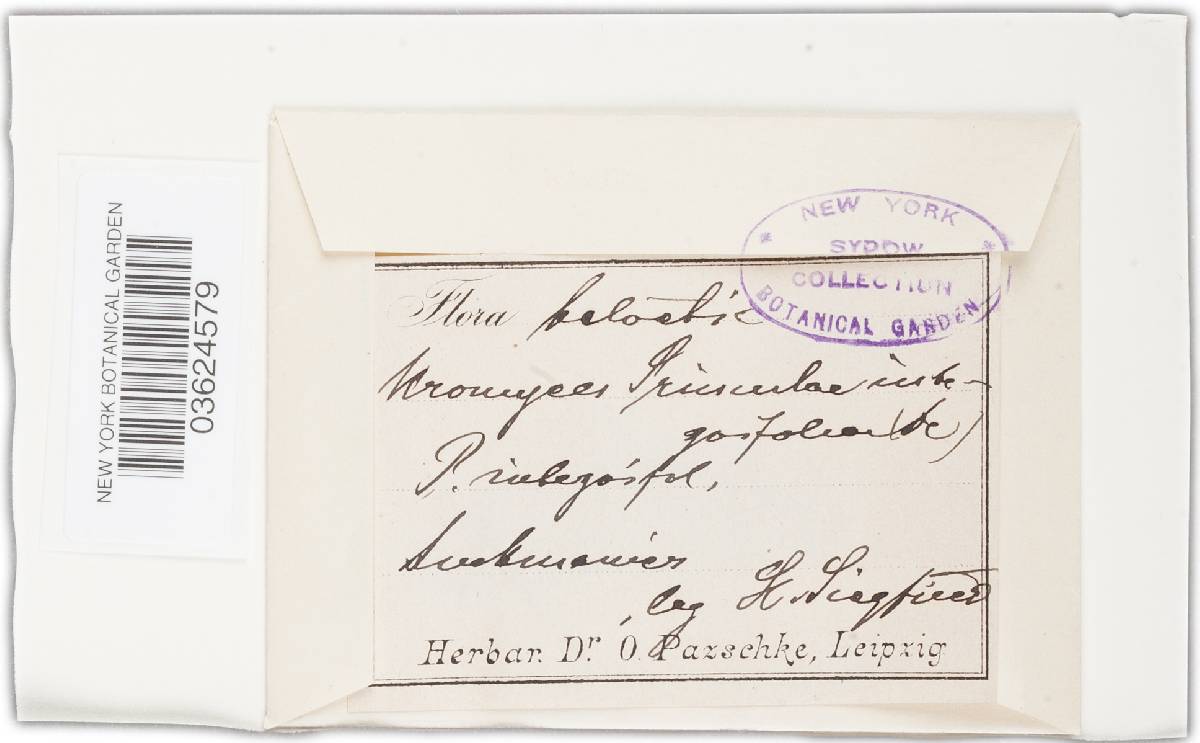 NEW YORK BOTANICAL GARDEN
03624579
* NEW YORK *
SYDOW
COLLECTION
BOTANICAL GARDEN
Flora helvetic
Uromyces Primulae inte-
grifoliae (Dc)
P. integrifol.
leg H. Siegfried
Herbar. Dr. O. Pazschke, Leipzig